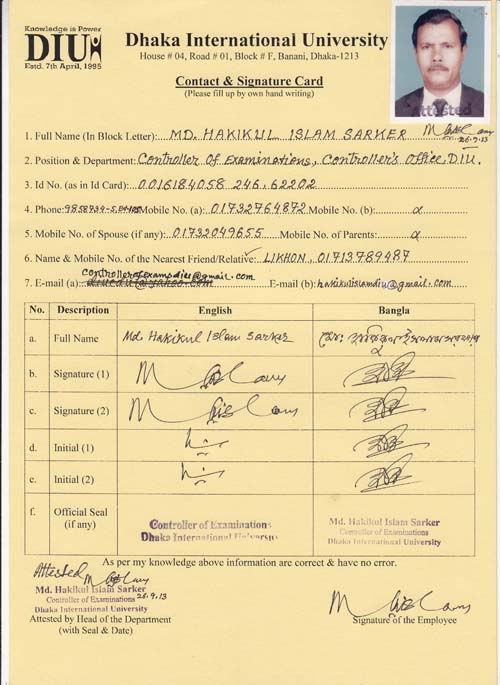 Knowledge is Power
DIU
Estd. 7th April, 1995
Dhaka International University
House # 04, Road # 01, Block # F, Banani, Dhaka-1213
Contact & Signature Card
(Please fill up by own hand writing)
Attested
26.9.13
1. Full Name (In Block Letter): MD. HAKIKUL ISLAM SARKER
2. Position & Department: Controller of Examinations, Controller's Office, DIU.
3. Id No. (as in Id Card): 0016184058 246, 62202
4. Phone: Mobile No. (a): 01732764872 Mobile No. (b): α
5. Mobile No. of Spouse (if any): 01732049655 Mobile No. of Parents: α
6. Name & Mobile No. of the Nearest Friend/Relative: LIKHON, 01713789487
controllerofexamsdiu@gmail.com
7. E-mail (a): diuedu@yahoo.com E-mail (b): hakikulislamdiu@gmail.com
No. Description English Bangla
a. Full Name Md. Hakikul Islam Sarker মোঃ
b. Signature (1)
c. Signature (2)
d. Initial (1)
e. Initial (2)
f. Official Seal
(if any)
Controller of Examinations
Dhaka International University
Md. Hakikul Islam Sarker
Controller of Examinations
Dhaka International University
As per my knowledge above information are correct & have no error.
Attested
Md. Hakikul Islam Sarker
Controller of Examinations 26.9.13
Dhaka International University
Attested by Head of the Department
(with Seal & Date)
Signature of the Employee